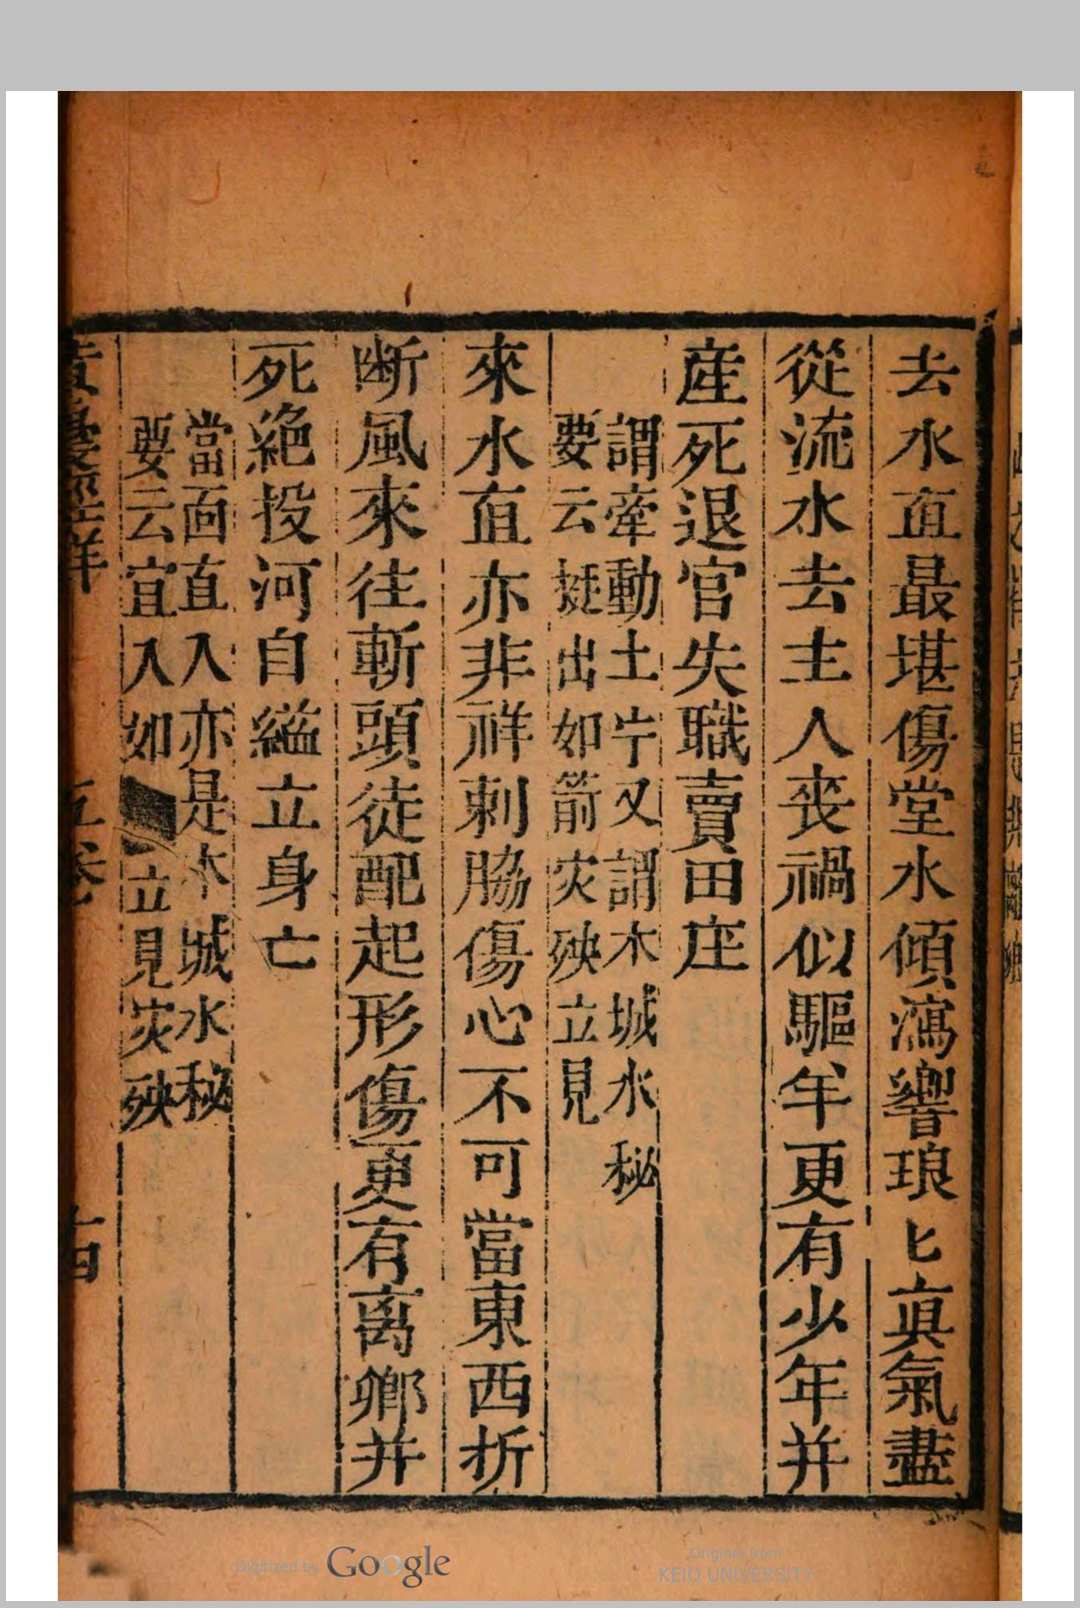 去水直最堪傷堂水傾瀉響琅匕眞氣盡
從流水去主人喪禍似驅羊更有少年并
産死退官失職賣田庄
謂牽動土牛又謂木城水秘
要云挺出如箭灾殃立見
來水直亦非祥刺脇傷心不可當東西折
断風來往斬頭徒配起形傷更有离鄉并
死絶投河自縊立身亡
當面直入亦是木城水秘
要云宜入如立見灾殃
五卷
十四
Digitized by Google
Original from
KEIO UNIVERSITY